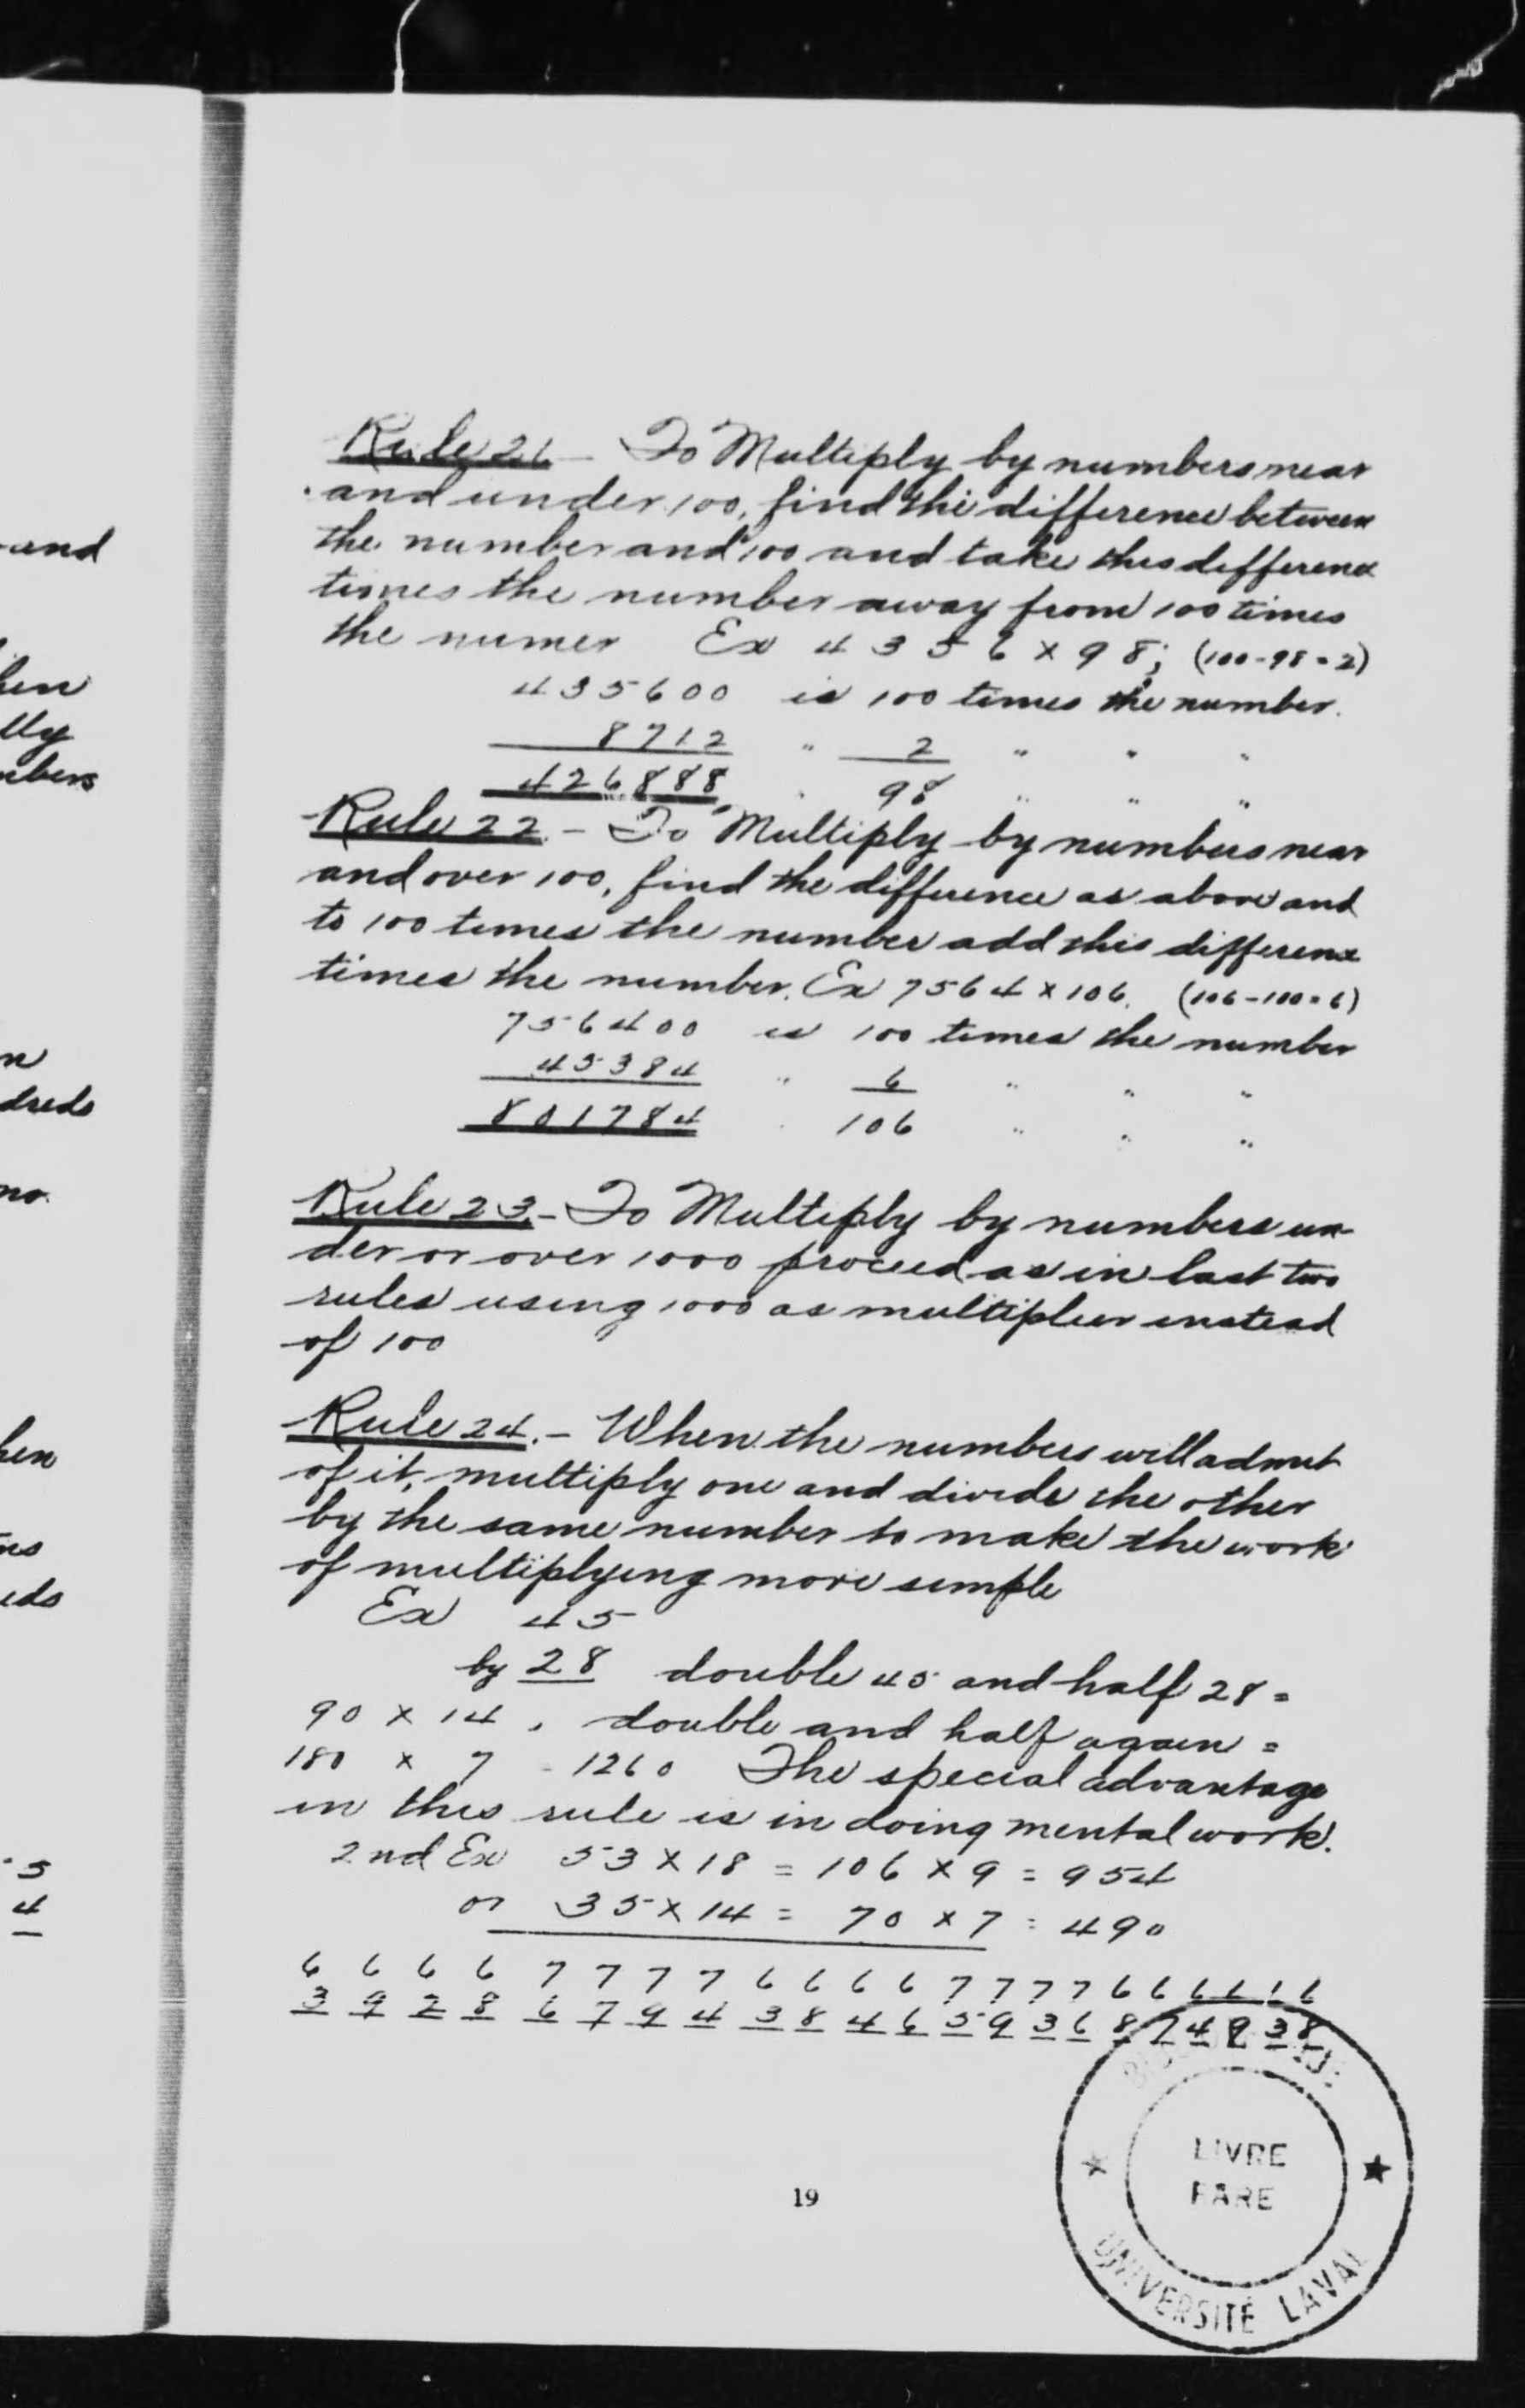 and
hen
lly
mbers
n
dreds
no.
hen
5
4
Rule 21 - To Multiply by numbers near
and under 100, find the difference between
the number and 100 and take this difference
times the number away from 100 times
the numer Ex 4356 x 98; (100-98=2)
435600 is 100 times the number.
8712 " 2 " " "
426888 " 98 " " "
Rule 22 - To Multiply by numbers near
and over 100, find the difference as above and
to 100 times the number add this difference
times the number. Ex 7564 x 106. (106-100=6)
756400 is 100 times the number
45384 " 6 " " "
801784 " 106 " " "
Rule 23. - To Multiply by numbers un-
der or over 1000 proceed as in last two
rules using 1000 as multiplier instead
of 100
Rule 24. - When the numbers will admit
of it, multiply one and divide the other
by the same number to make the work
of multiplying more simple
Ex 45
by 28 double 45 and half 28 =
90 x 14, double and half again =
180 x 7 = 1260 The special advantage
in this rule is in doing mental work.
2nd Ex 53 x 18 = 106 x 9 = 954
or 35 x 14 = 70 x 7 = 490
6 6 6 6 7 7 7 7 6 6 6 6 7 7 7 7 6 6 6 6 6 6
3 9 2 8 6 7 9 4 3 8 4 6 5 9 3 6 8 7 4 9 3 8
LIVRE
RARE
UNIVERSITÉ LAVAL
19